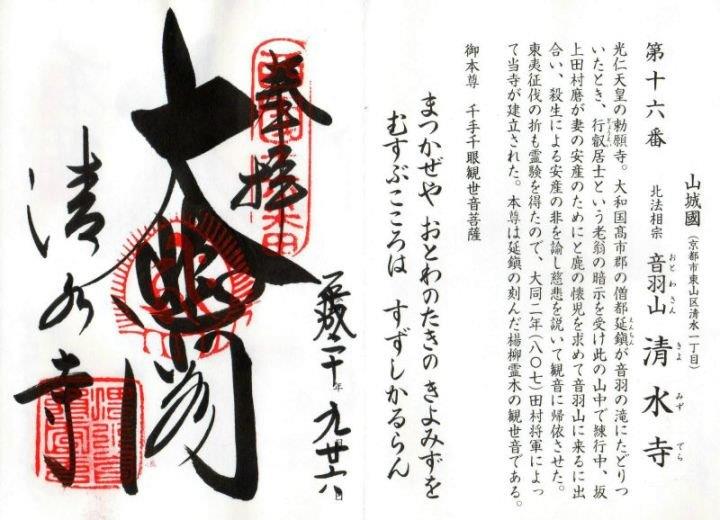 山城國(京都市東山区清水一丁目)
第十六番 北法相宗 音羽山 清水寺
おとわさん きよみずでら
光仁天皇の勅願寺。大和国高市郡の僧都延鎮が音羽の滝にたどりつ
いたとき、行叡居士という老翁の暗示を受け此の山中で練行中、坂
上田村磨が妻の安産のためにと鹿の懐児を求めて音羽山に来るに出
合い、殺生による安産の非を諭し慈悲を説いて観音に帰依させた。
東夷征伐の折も霊験を得たので、大同二年(八〇七)田村将軍によっ
て当寺が建立された。本尊は延鎮の刻んだ楊柳霊木の観世音である。
御本尊 千手千眼観世音菩薩
まつかぜや おとわのたきの きよみずを
むすぶこころは すずしかるらん
平成二十年九月廿六日
奉拝
大悲閣
清水寺